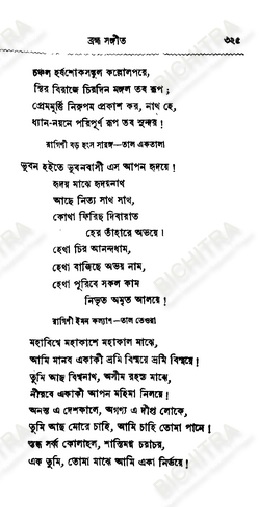 ব্রহ্ম সঙ্গীত ৩২৫
চঞ্চল হর্ষশোকসঙ্কুল কল্লোলপরে,
স্থির বিরাজে চিরদিন মঙ্গল তব রূপ;
প্রেমমূর্ত্তি নিরুপম প্রকাশ কর, নাথ হে,
ধ্যান-নয়নে পরিপূর্ণ রূপ তব সুন্দর!
রাগিণী বড় হংস সারঙ্গ—তাল একতালা
ভুবন হইতে ভুবনবাসী এস আপন হৃদয়ে!
হৃদয় মাঝে হৃদয়নাথ
আছে নিত্য সাথ সাথ,
কোথা ফিরিছ দিবারাত
হের তাঁহারে অভয়ে।
হেথা চির আনন্দধাম,
হেথা বাজিছে অভয় নাম,
হেথা পূরিবে সকল কাম
নিভৃত অমৃত আলয়ে!
রাগিণী ইমন কল্যাণ—তাল তেওরা
মহাবিশ্বে মহাকাশে মহাকাল মাঝে,
আমি মানব একাকী ভ্রমি বিস্ময়ে ভ্রমি বিস্ময়ে!
তুমি আছ বিশ্বনাথ, অসীম রহস্য মাঝে,
নীরবে একাকী আপন মহিমা নিলয়ে!
অনন্ত এ দেশকালে, অগণ্য এ দীপ্ত লোকে,
তুমি আছ মোরে চাহি, আমি চাহি তোমা পানে!
স্তব্ধ সর্ব্ব কোলাহল, শান্তিমগ্ন চরাচর,
এক তুমি, তোমা মাঝে আমি একা নির্ভয়ে!
BICHITRA